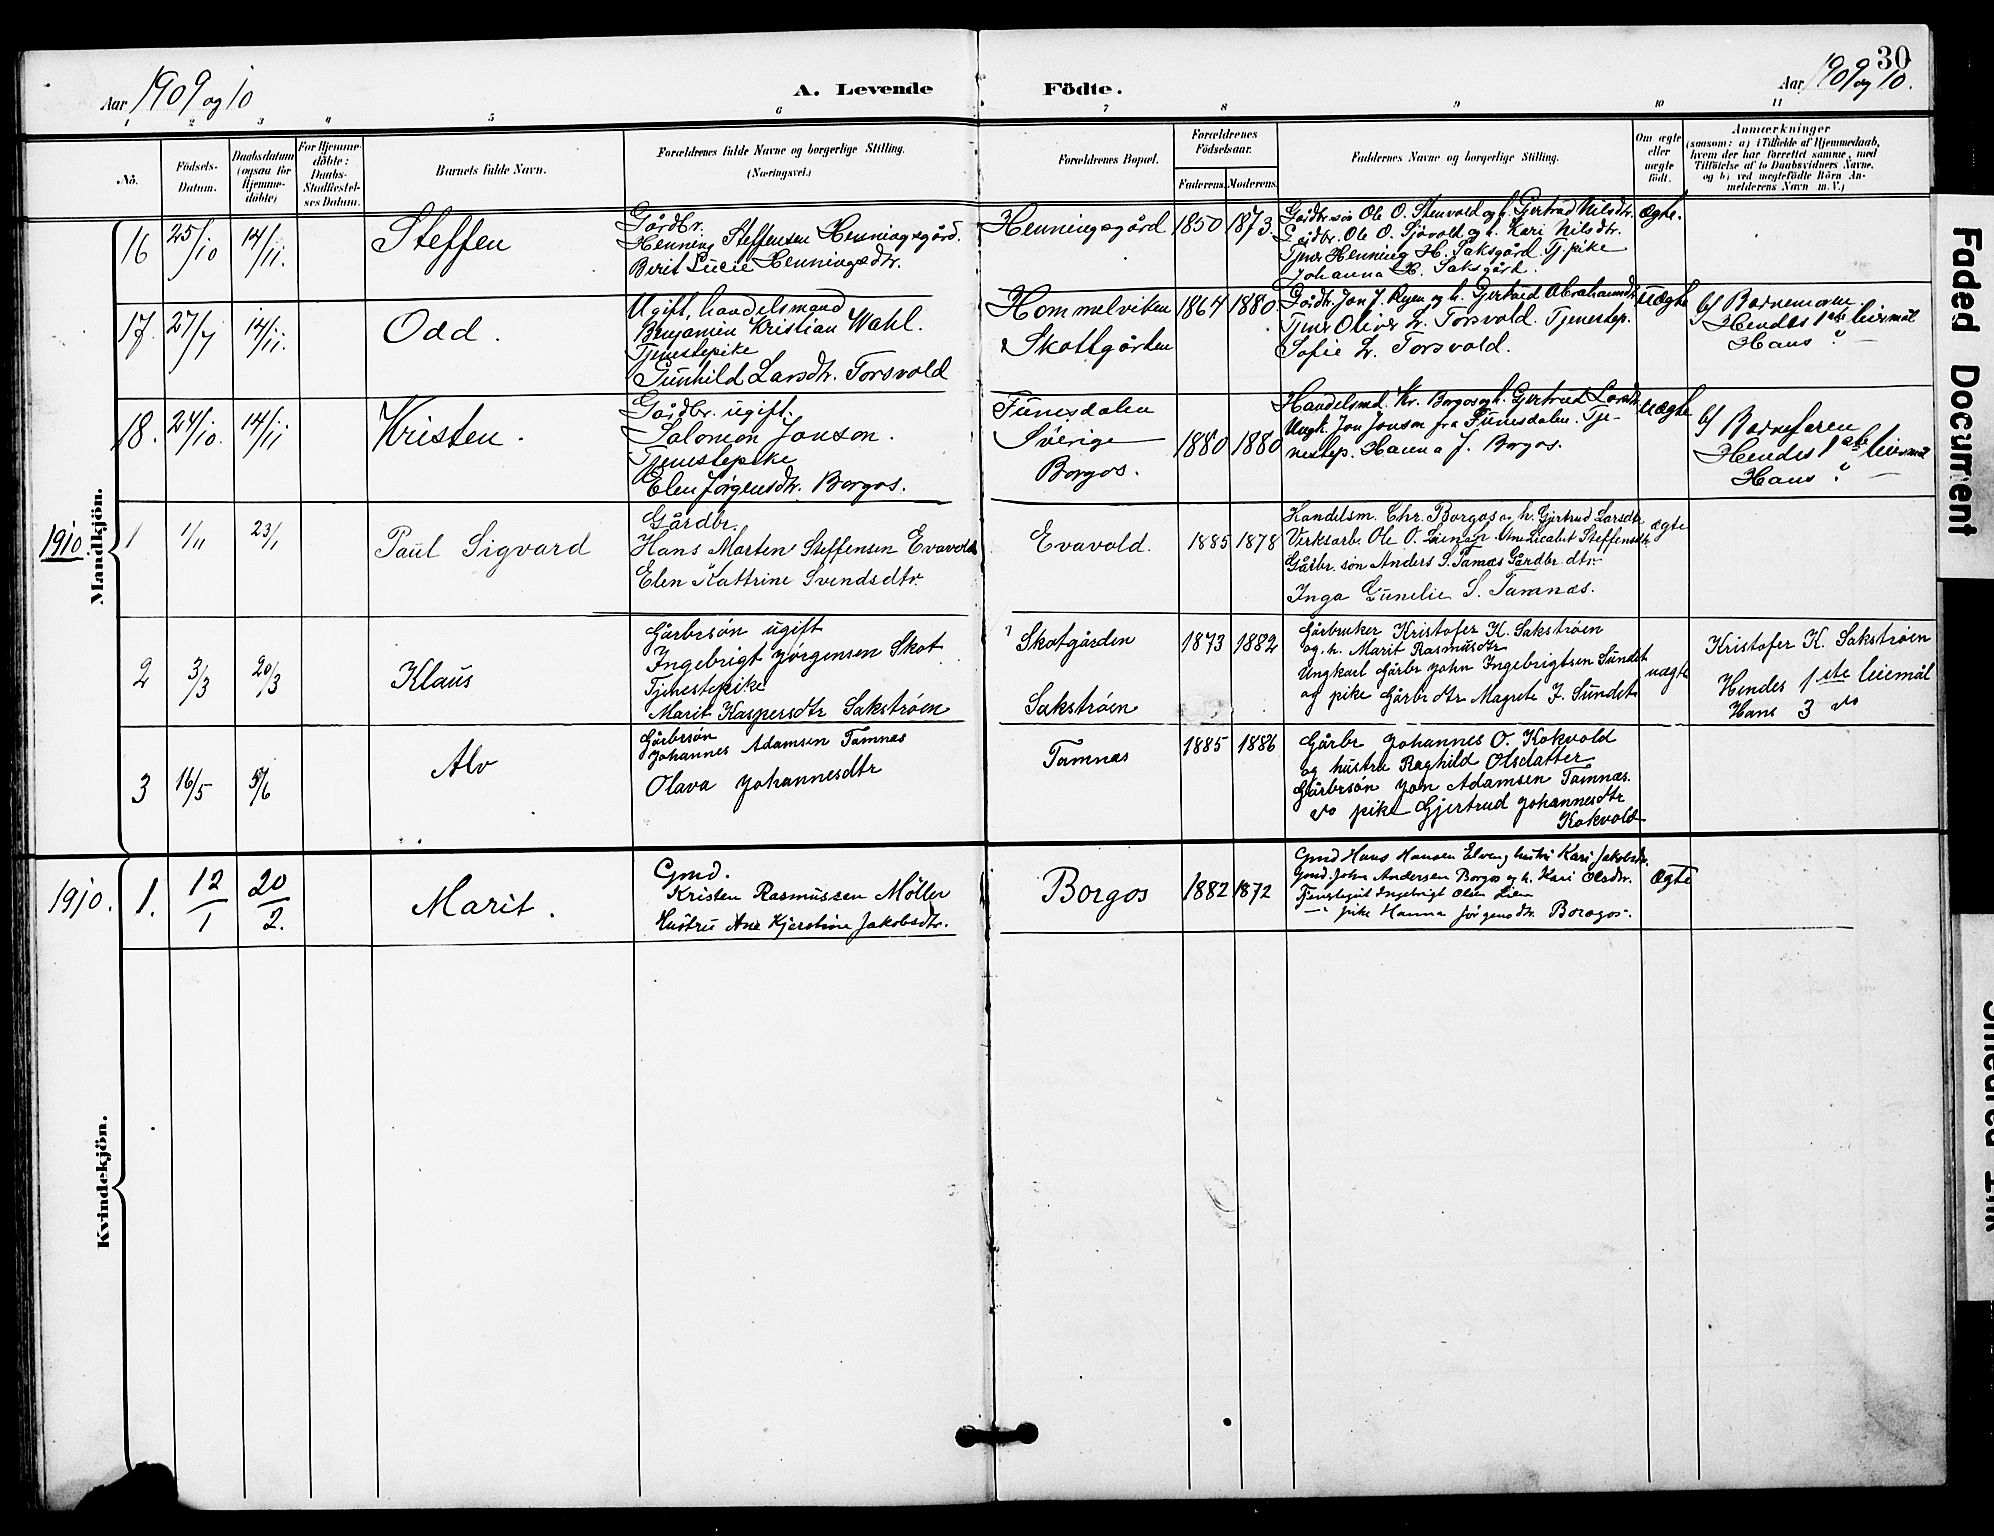 30
Aar 1909 og 10
A. Levende Födte.
Aar 1909 og 10.
1 2 3 4 5 6 7 8 9 10 11
No.
Födsels-
Datum.
Daabsdatum
(ogsaa for
Hjemme-
döbte)
For Hjemme-
döbte:
Daabs-
Stadfæstel-
ses Datum.
Barnets fulde Navn.
Forældrenes fulde Navne og borgerlige Stilling.
(Næringsvei.)
Forældrenes Bopæl.
Forældrenes
Födselsaar.
Faderens. Moderens.
Faddernes Navne og borgerlige Stilling.
Om ægte
eller
uægte
födt.
Anmærkninger
(saasom: a) i Tilfælde af Hjemmedaab,
hvem der har forrettet samme, med
Tilföielse af to Daabsvidners Navne,
og b) ved uægtefödte Börn An-
melderens Navn m. V.)
Mandkjön.
16 25/10 14/11. Steffen
Gårdbr.
Henning Steffensen Henningsgård.
Berit Lucie Henningsdtr.
Henningsgård 1850 1873.
Gårdbr.søn Ole O. Stenvold og h. Gjertrud Nilsdtr.
Gårdbr. Ole O. Sjøvold og h. Kari Nilsdtr.
Tjener Henning H. Saksgård. Tj.pike
Johanna H. Saksgård.
Ægte.
17. 27/7 14/11. Odd.
Ugift, handelsmand
Benjamin Kristian Wahl.
Tjenestepike
Gunhild Larsdtr. Torsvold
Hommelviken
Skottgården
1864 1880.
Gårdbr. Jon J. Ryen og h. Gjertrud Abrahamsdtr.
Tjener Oliver L. Torsvold. Tjenestep.
Sofie L. Torsvold.
Uægte
b/ Barnemoren.
Hendes 1ste leiermål
Hans " —
18. 24/10. 14/11 Kristen.
Gårdbr. ugift.
Salomon Jonson.
Tjenestepike
Elen Jørgensdtr. Borgos.
Funesdalen
Sverige
Borgos.
1880 1880
Handelsmd. Kr. Borgos og h. Gjertrud Larsdtr.
Ungk. Jon Jonson fra Funesdalen. Tje-
nestep. Hanna J. Borgos.
Uægte
b/ Barnefaren
Hendes 1ste leiermål
Hans " —
1910.
1 1/11 23/1 Paul Sigvard
Gårdbr.
Hans Morten Steffensen Evavold
Elen Kattrine Svendsdtr.
Evavold. 1885 1878
Handelsm. Chr. Borgos og h. Gjertrud Larsdtr.
Verksarb. Ole O. Ane Licabet Steffensdtr.
Gårbr. søn Anders S. Tamnæs Gårdbr. dtr.
Inga Gunelie S. Tamnæs.
ægte
2 3/3 20/3 Klaus
Gårbrsøn ugift
Ingebrigt Jørgensen Skot
Tjenestepike
Marit Kaspersdtr Sakstrøen
Skotgården
Sakstrøen
1873 1882
Gårbruker Kristofer K. Sakstrøen
og h. Marit Rasmusdtr
Ungkarl Gårbr John Ingebrigtsen Sundet
og pike Gårbr dtr Magrete J. Sundet
uægte
Kristofer K. Sakstrøen
Hendes 1ste leiemål
Hans 3 do
3 16/5 5/6 Alv
Gårbrsøn
Johannes Adamsen Tamnæs
Olava Johannesdtr
Tamnæs 1885 1886
Gårbr Johannes O. Kokvold
og hustru Raghild Olsdatter
Gårbrsøn Jon Adamsen Tamnæs.
do pike Gjertrud Johannesdtr
Kokvold
Kvindekjön.
1910. 1. 12/1 20/2. Marit.
Gmd.
Kristen Rasmussen Möller
Hustru Ane Kjerstine Jakobsdtr.
Borgos 1882 1872
Gmd Hans Hansen Elven og hustru Kari Jakobsdtr.
Gmd. John Andersen Borgos og h. Kari Olsdtr.
Tjenestegut Ingebrigt Olsen Lien
—"— pike Hanna Jörgensdtr. Borogos.
Ægte
Faded Document
Smeared Ink